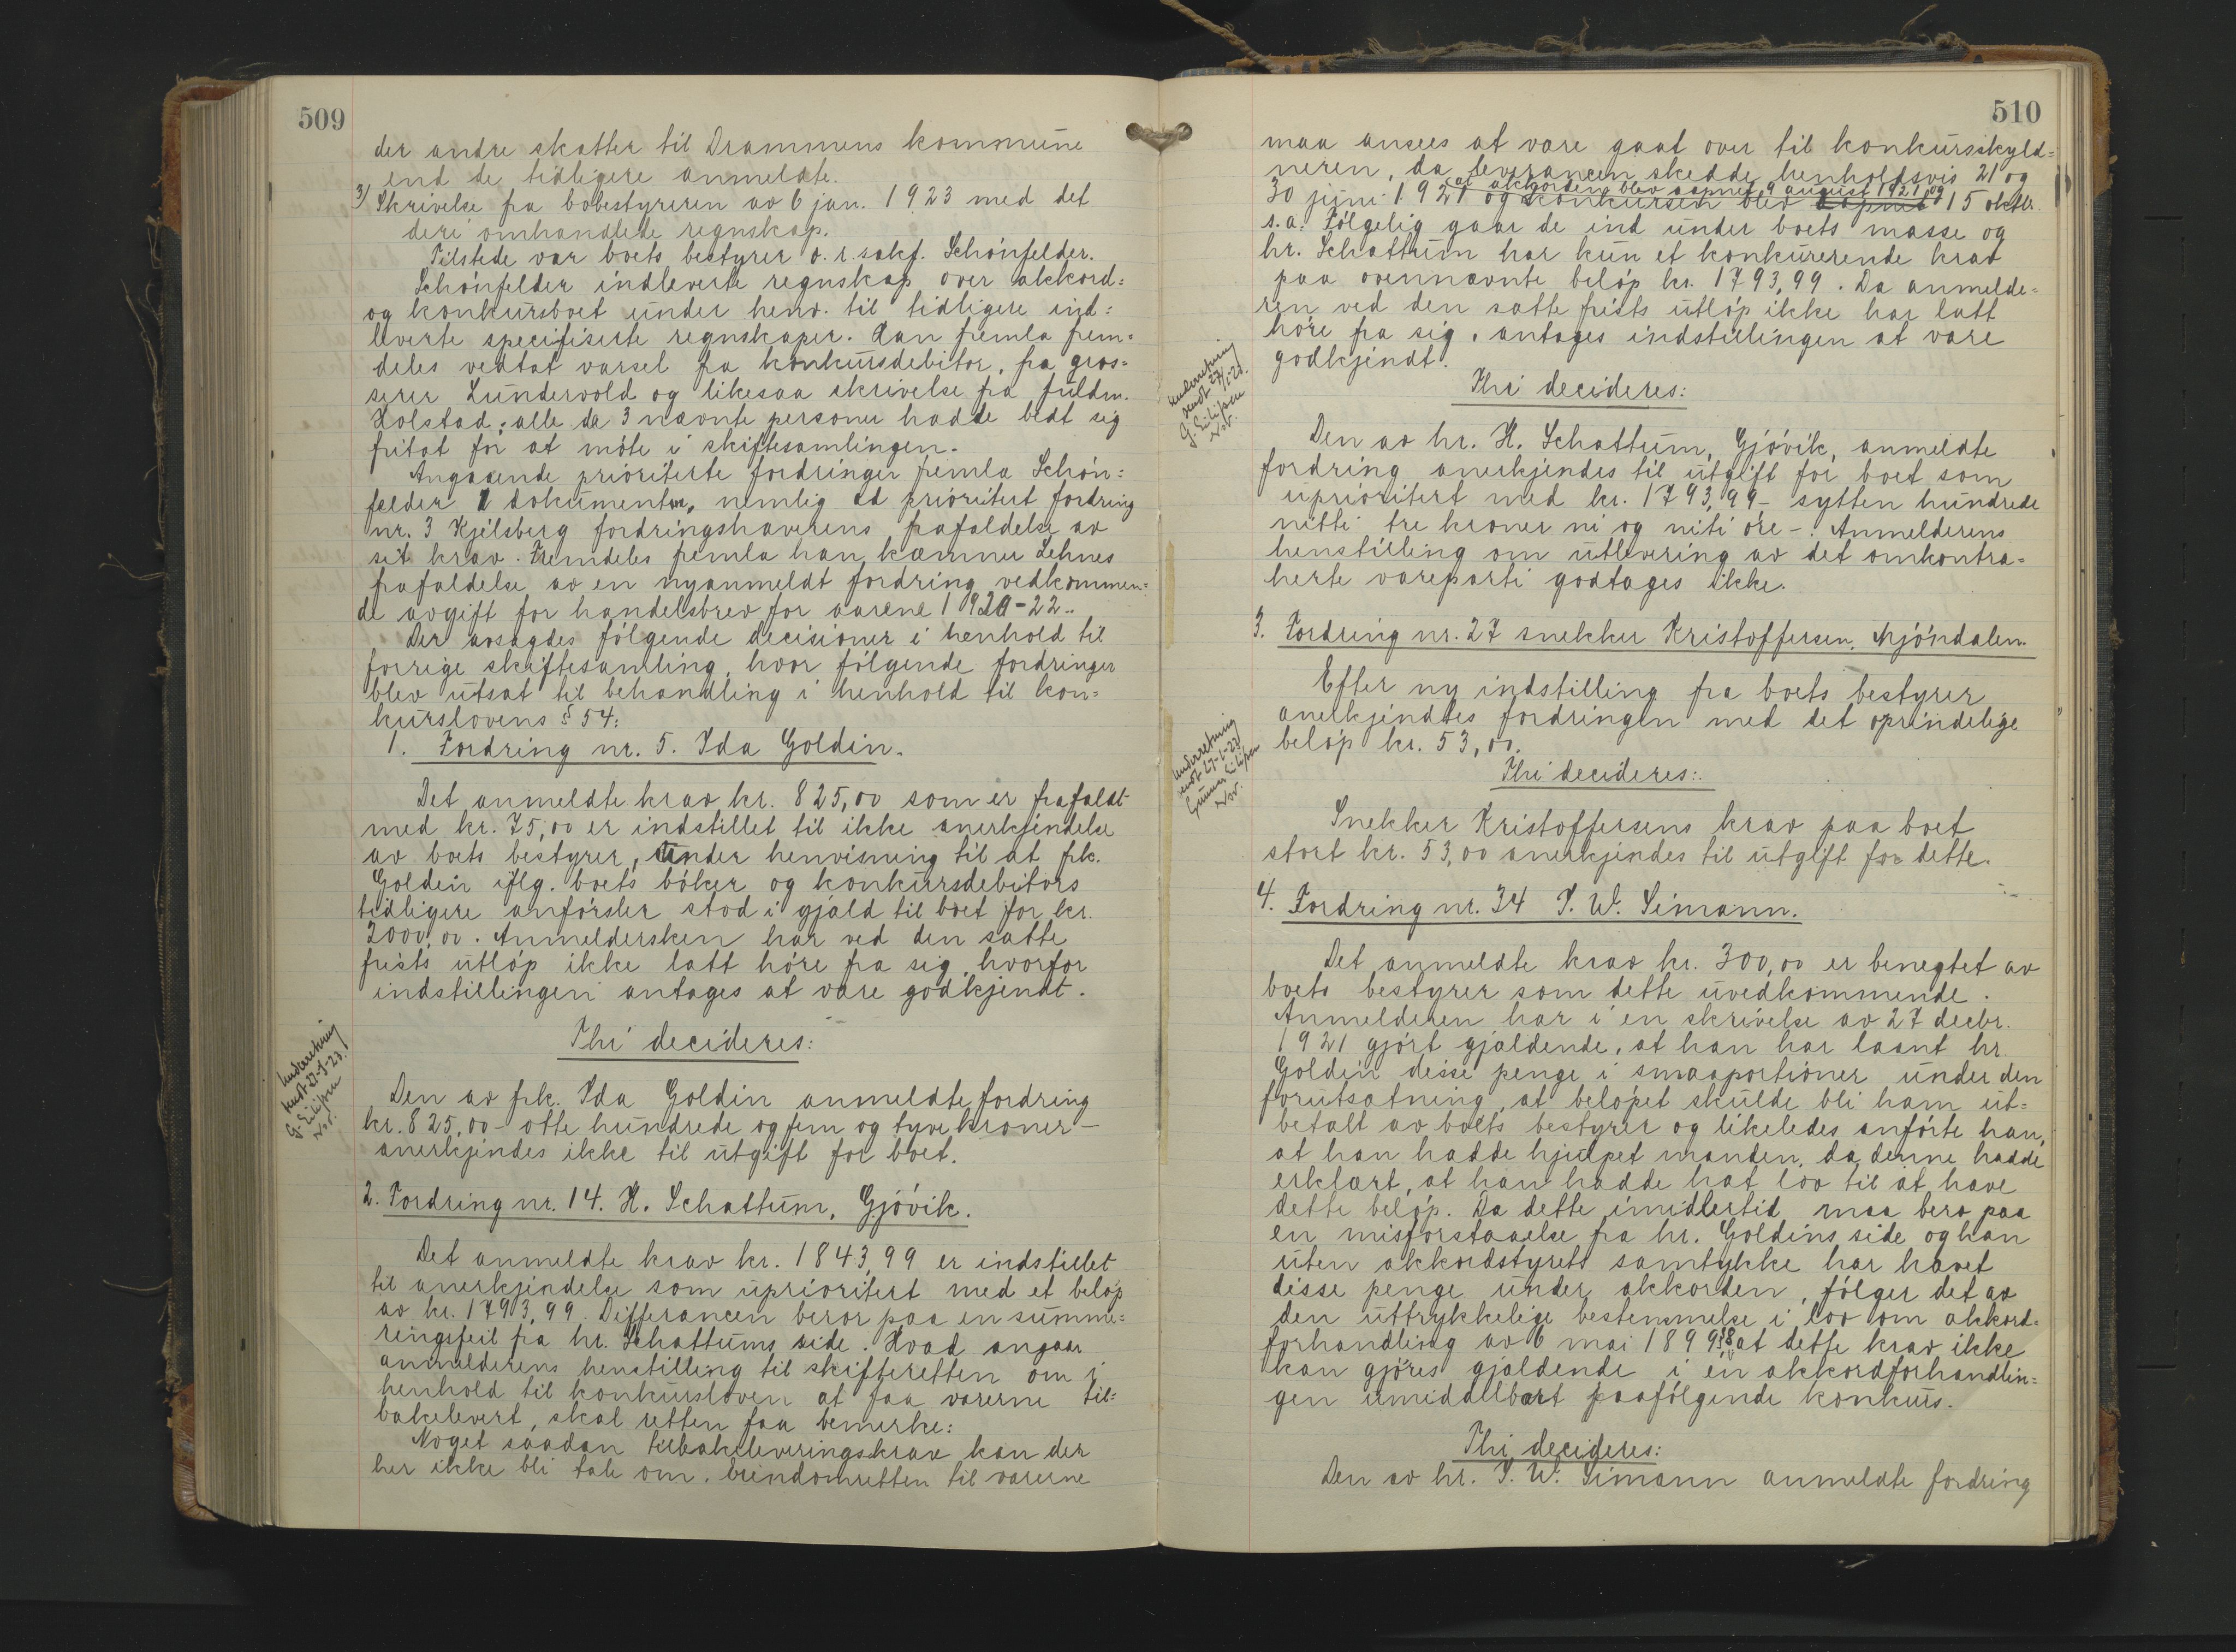 509
der andre skatter til Drammens kommune
end de tidligere anmeldte.
3) Skrivelse fra bobestyreren av 6 jan. 1923 med det
deri omhandlede regnskap.
Tilstede var boets bestyrer o.r.sakf. Schönfelder.
Schönfelder indleverte regnskap over akkord=
og konkursboet under henv. til tidligere ind=
leverte specifiserte regnskaper. Han fremla frem=
deles vedtat varsel fra konkursdebitor, fra gros=
serer Lundervold og likesaa skrivelse fra fuldm.
Holstad; alle de 3 nævnte personer hadde bedt sig
fritat for at møte i skiftesamlingen.
Angaaende prioriterte fordringer fremla Schön=
felder 1 dokumenter, nemlig ad prioritert fordring
nr. 3 Kjelsberg fordringshaverens frafaldelse av
sit krav. Fremdeles fremla han kæmner Lehnes
frafaldelse av en nyanmeldt fordring vedkommen=
de avgift for handelsbrev for aarene 1920-22.
Der avsagdes følgende decisioner i henhold til
forrige skiftesamling, hvor følgende fordringer
blev utsat til behandling i henhold til kon=
kurslovens § 54:
1. Fordring nr. 5. Ida Goldin.
Det anmeldte krav kr. 825,00 som er frafaldt
med kr. 75,00 er indstillet til ikke anerkjendelse
av boets bestyrer, under henvisning til at frk.
Goldin iflg. boets bøker og konkursdebitors
tidligere anførsler stod i gjæld til boet for kr.
2000,00. Anmeldersken har ved den satte
frists utløp ikke latt høre fra sig, hvorfor
indstillingen antages at være godkjendt.
Thi decideres:
Underretning
sendt 27-1-23.
G. Eilifsen
Den av frk. Ida Goldin anmeldte fordring
kr. 825,00 - otte hundrede og fem og tyve kroner -
anerkjendes ikke til utgift for boet.
2. Fordring nr. 14. H. Schattum, Gjøvik.
Det anmeldte krav kr. 1843,99 er indstillet
til anerkjendelse som uprioritert med et beløp
av kr. 1793,99. Differancen beror paa en summe=
ringsfeil fra hr. Schattums side. Hvad angaar
anmelderens henstilling til skifteretten om i
henhold til konkursloven at faa varerne til=
bakelevert, skal retten faa bemerke:
Noget saadan tilbakeleveringskrav kan der
her ikke bli tale om. Eiendomsretten til varerne
510
maa ansees at være gaat over til konkursskyld=
neren, da leverancen skedde henholdsvis 21 og
at akkorden blev aapnet 9 august 1921 og
30 juni 1921 og konkursen blev aapnet 15 oktbr.
s.a. Følgelig gaar de ind under boets masse og
hr. Schattum har kun et konkurerende krav
paa ovennævnte beløp kr. 1793,99. Da anmelde=
ren ved den satte frists utløp ikke har latt
høre fra sig, antages indstillingen at være
godkjendt.
Underretning
sendt 27/1-23.
G. Eilifsen
Thi decideres:
Den av hr. H. Schattum, Gjøvik, anmeldte
fordring anerkjendes til utgift for boet som
uprioritert med kr. 1793,99 - sytten hundrede
nitti tre kroner ni og niti øre -. Anmelderens
henstilling om utlevering av det omkontra=
herte vareparti godtages ikke.
3. Fordring nr. 27 snekker Kristoffersen, Mjøndalen.
Efter ny indstilling fra boets bestyrer
anerkjendtes fordringen med det oprindelige
beløp kr. 53,00.
Underretning
sendt 27-1-23
Gunnar Eilifsen
Thi decideres:
Snekker Kristoffersens krav paa boet
stort kr. 53,00 anerkjendes til utgift for dette.
4. Fordring nr. 34 J. W. Simann.
Det anmeldte krav kr. 300,00 er benegtet av
boets bestyrer som dette uvedkommende.
Anmelderen har i en skrivelse av 27 decbr.
1921 gjort gjældende, at han har laant hr.
Goldin disse penge i smaaportioner under den
forutsætning, at beløpet skulde bli ham ut=
betalt av boets bestyrer og likeledes anførte han,
at han hadde hjulpet manden, da denne hadde
erklært, at han hadde hat lov til at have
dette beløp. Da dette imidlertid maa bero paa
en misforstaaelse fra hr. Goldins side og han
uten akkordstyrets samtykke har hævet
disse penge under akkorden, følger det av
den uttrykkelige bestemmelse i lov om akkord=
forhandling av 6 mai 1899 § 8 at dette krav ikke
kan gjøres gjældende i en akkordforhandlin=
gen umiddelbart paafølgende konkurs.
Thi decideres:
Den av hr. J. W. Simann anmeldte fordring